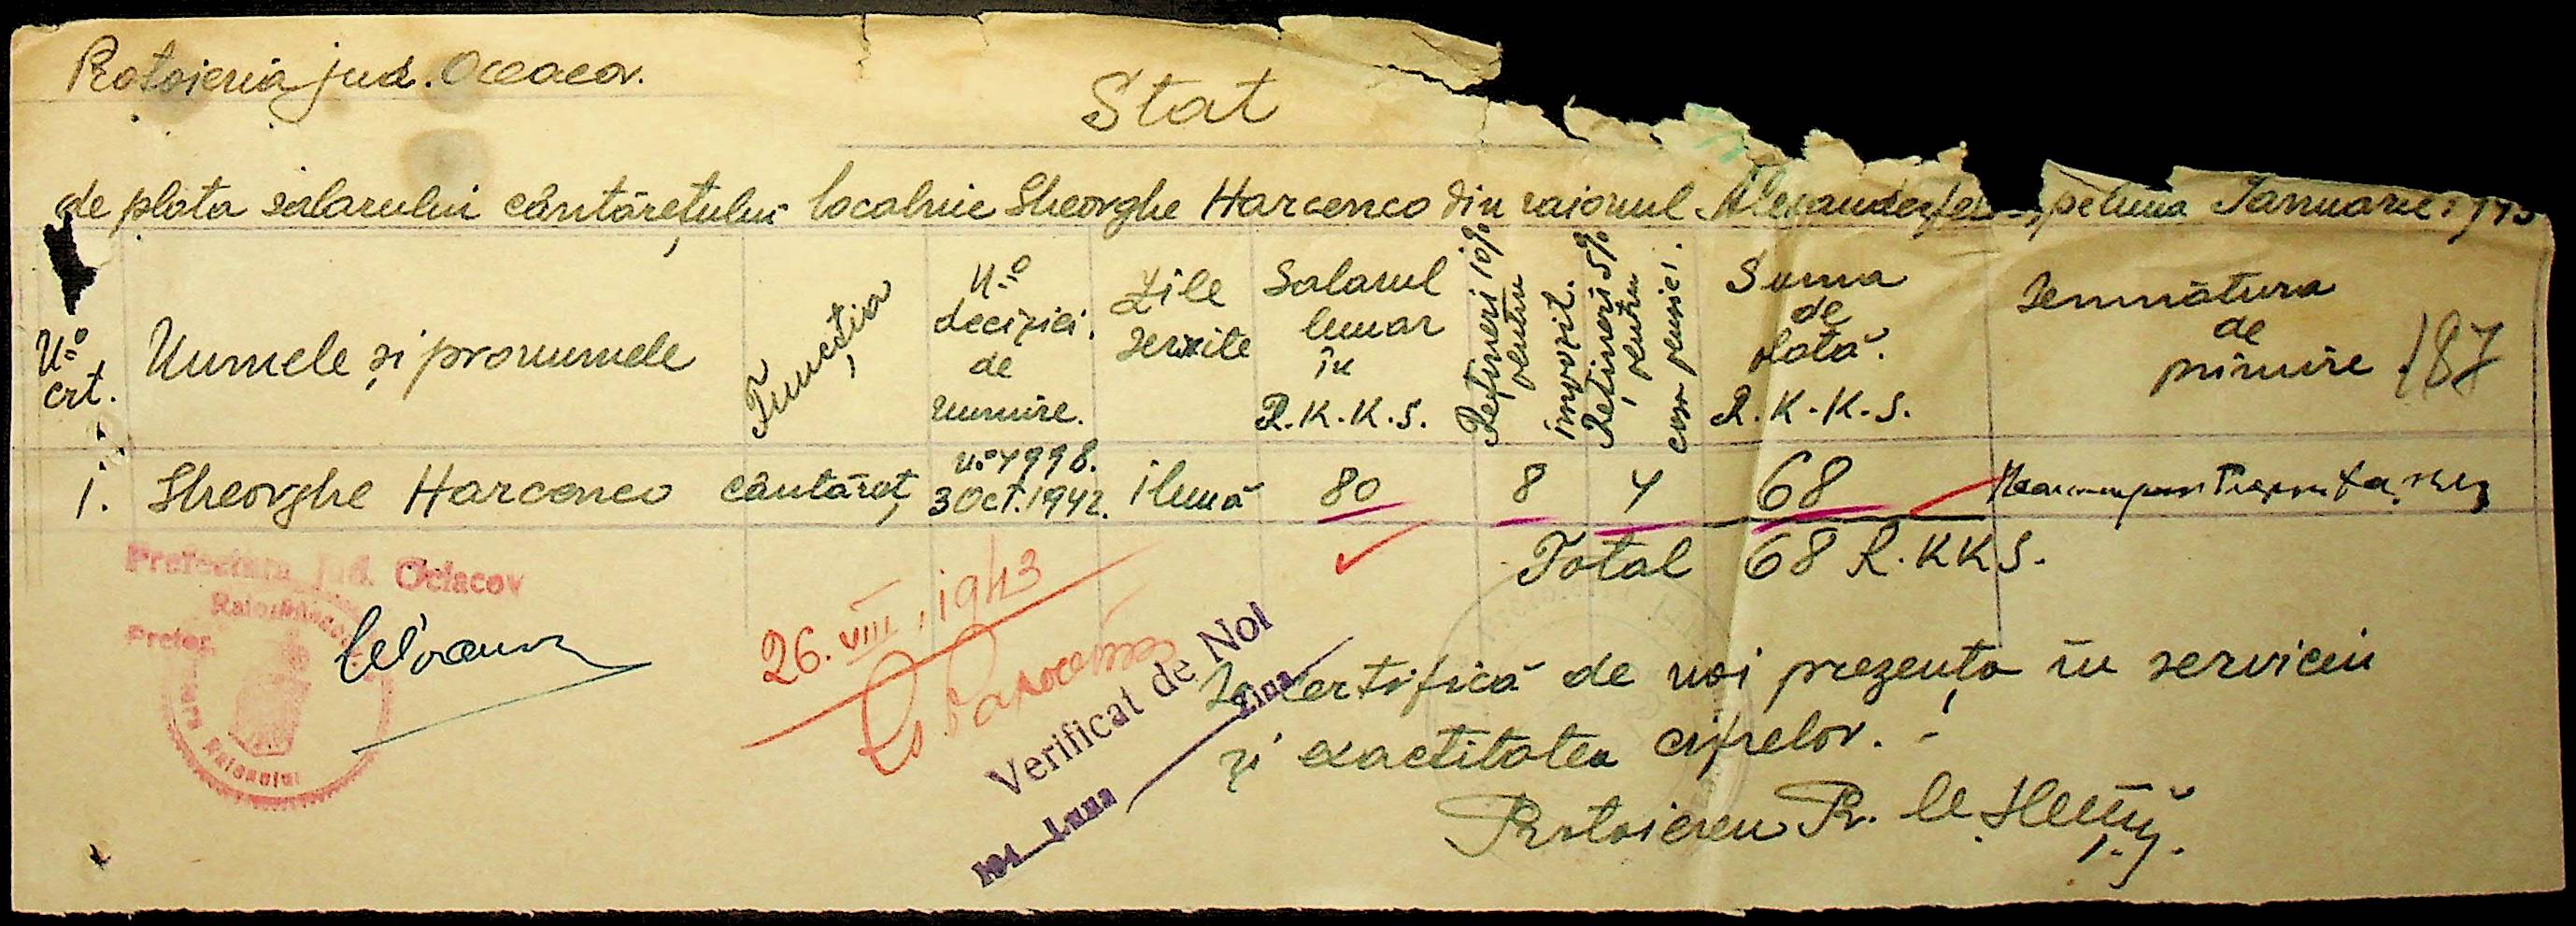 Protoieria jud. Oceacov.
Stat
de plata salarului cântărețului localnic Gheorghe Harcenco din raionul Alexanderfeld pe luna Ianuarie 1943
N:o crt.
Numele și pronumele
Funcția
N:o deciziei de numire.
Zile servite
Salarul lunar în R.K.K.S.
Rețineri 10% pentru impozit.
Rețineri 5% pentru casa pensiei.
Suma de plată. R.K.K.S.
Semnătura de primire
187
1. Gheorghe Harcenco cântăreț N:o 4998. 3 Oct. 1942. 1 lună 80 8 4 68
Total 68 R.KKS.
Prefectura Jud. Ociacov
Pretor,
Raionului
26.VIII.1943
Verificat de Noi
194 Luna Ziua
Se certifică de noi prezența în serviciu
și exactitatea cifrelor.-
Protoiereu Pr.